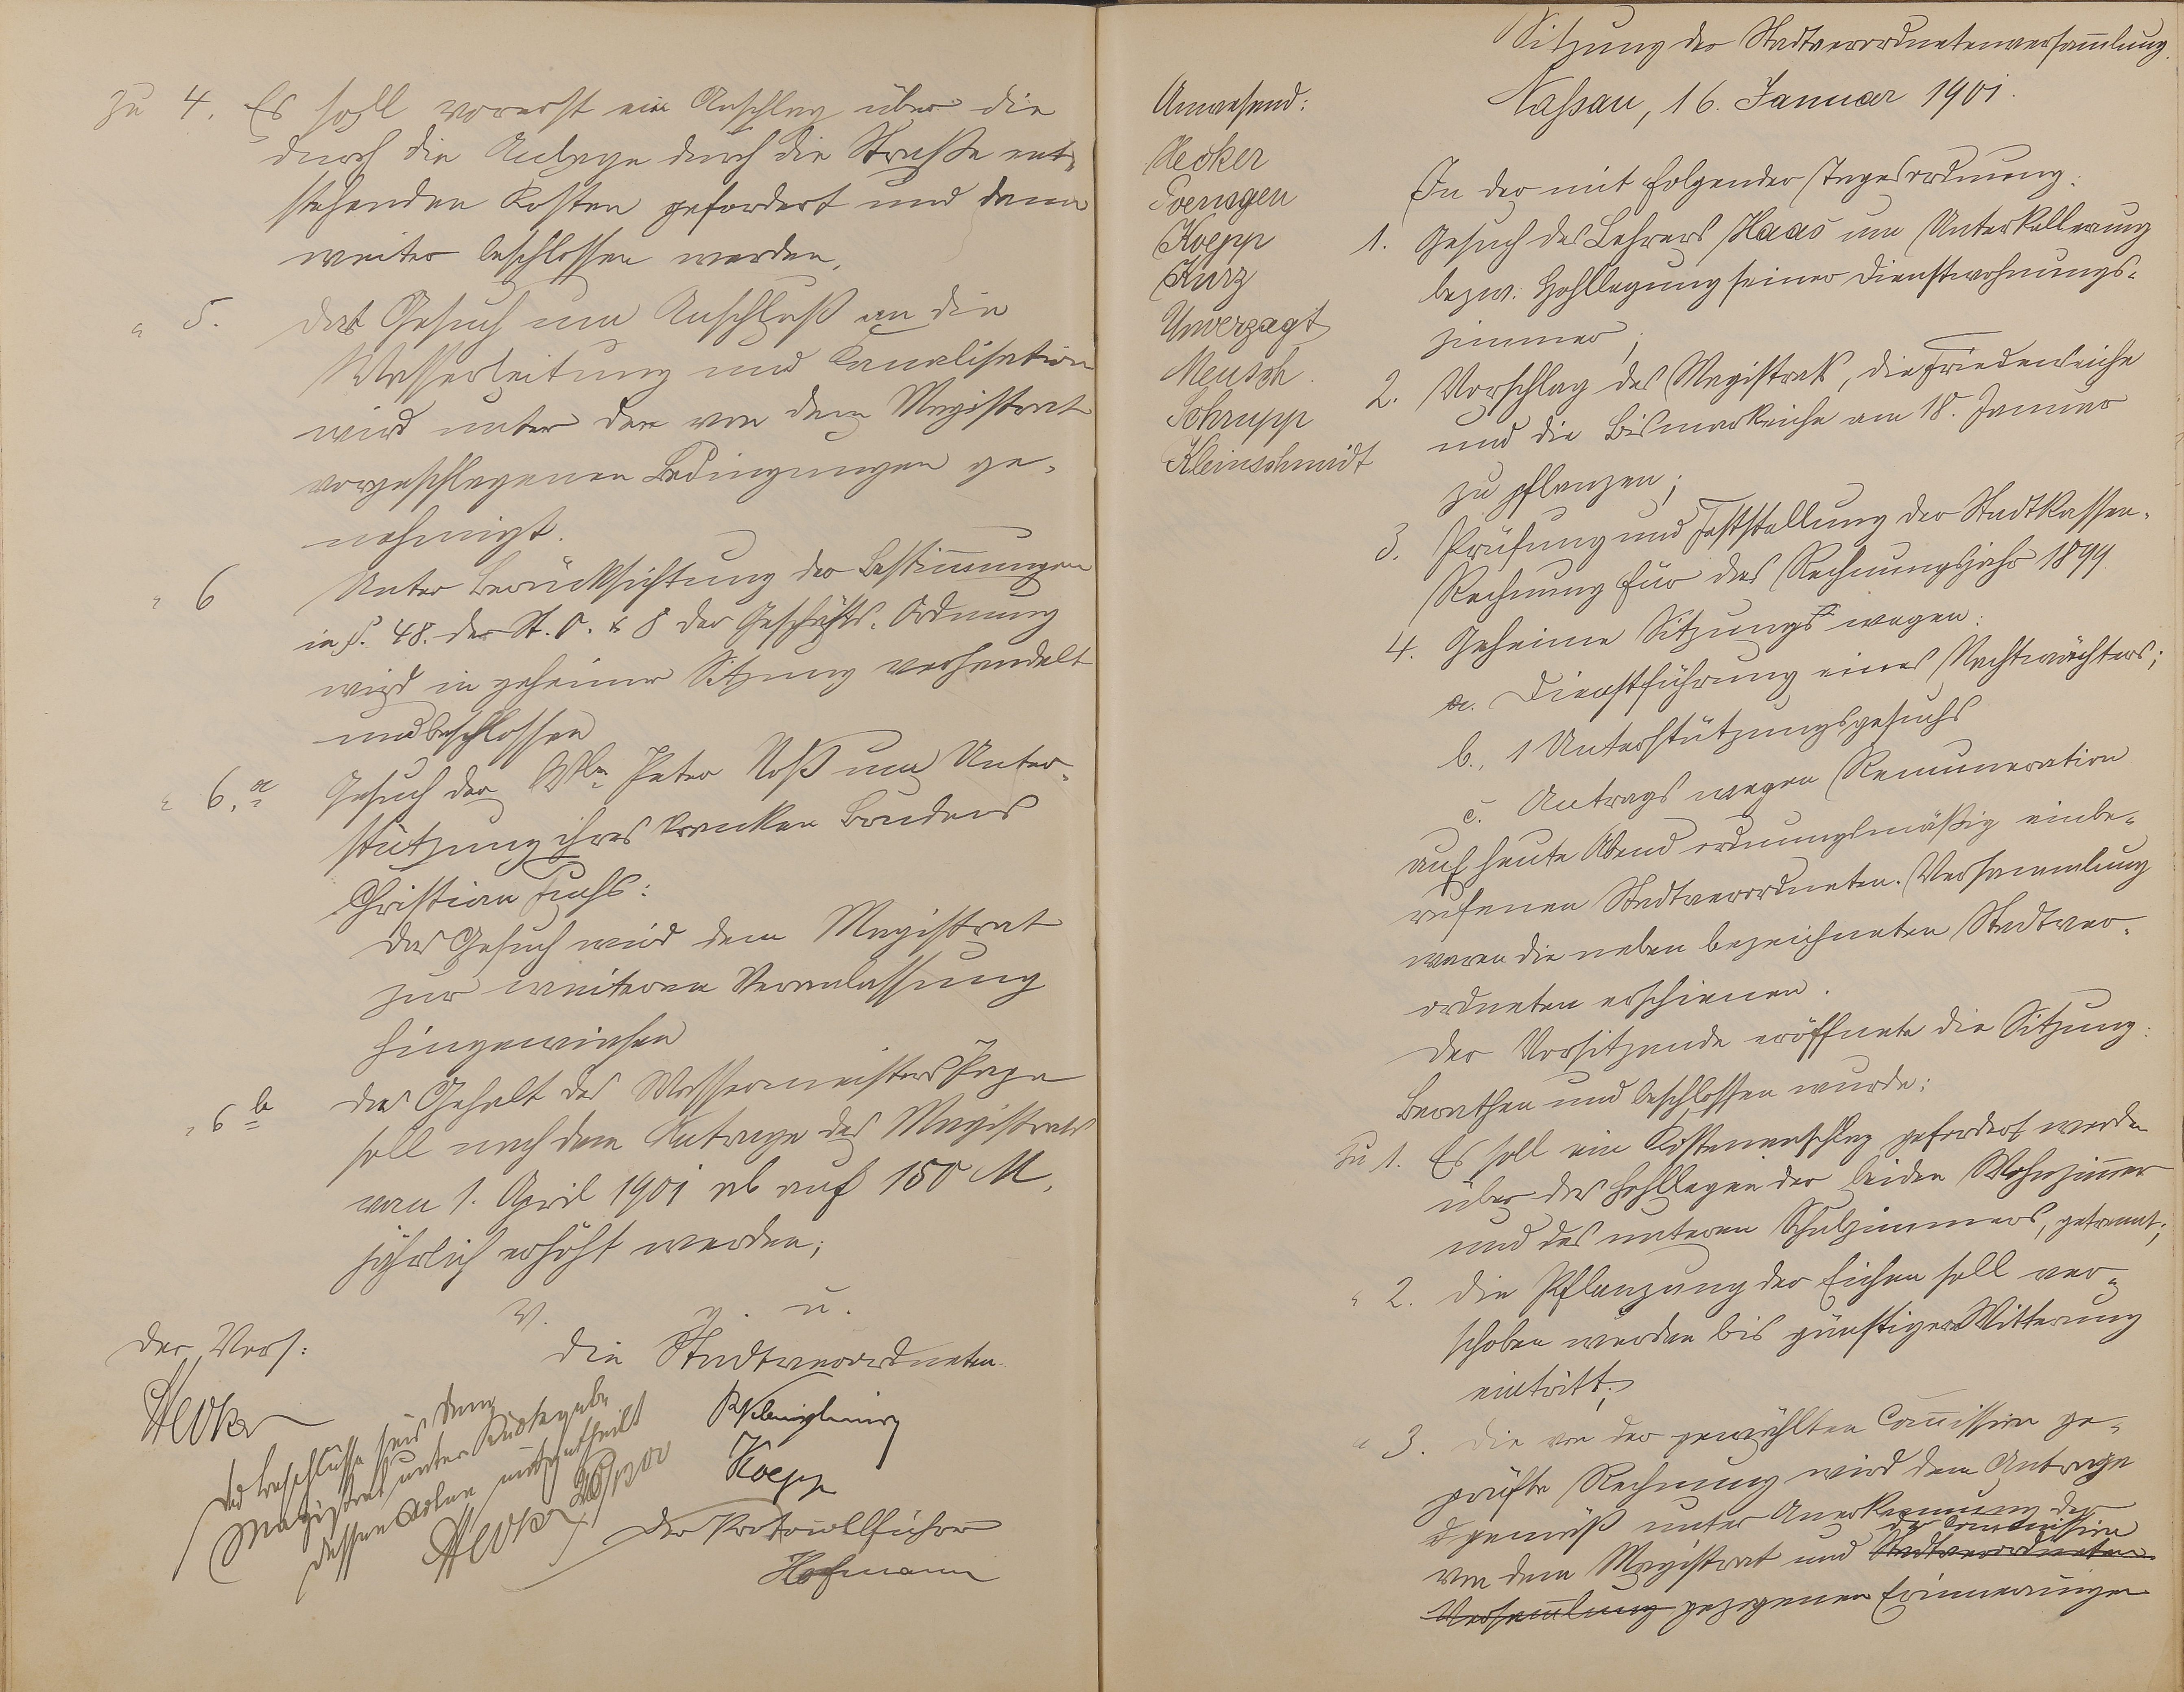 zu 4. Es soll vorerst ein Anschlag über die
durch die Anlage durch die Straße ent-
stehenden Kosten gefordert und dann
weiter beschlossen werden.
" 5. Das Gesuch um Anschluß an die
Wasserleitung und Kanalisation
wird unter den von dem Magistrat
vorgeschlagenen Bedingungen ge-
nehmigt.
" 6 Unter Berücksichtung der Bestim̄ungen
in §. 48. der St. O. & 8 der Geschäfts-Ordnung
wird in geheimer Sitzung verhandelt
und beschlossen
" 6.a Gesuch der Peter Noß um Unter-
stützung ihres kranken Bruders
Christian Fuchs:
Das Gesuch wird dem Magistrat
zur weiteren Veranlassung
hingewiesen
" 6b Das Gehalt des Wassermeisters
soll nach dem Antrage des Magistrats
vom 1. April 1901 ab auf 150 M.
jährlich erhöht werden;
V. g. u.
Der Vors: Die Stadtverordneten
Hecker
Koepp
Der Protocollführer
Hofmann
Die Beschlüsse sind dem
Magistrat unter Rückgabe
dessen Akten mitgetheilt
Hecker
Sitzung der Stadtverordnetenversam̄lung.
Nassau, 16. Januar 1901.
Anwesend:
Hecker
Poensgen
Koepp
Kurz
Unverzagt
Meusch.
Schrupp
Kleinschmidt
In der mit folgender Tagesordnung:
1. Gesuch des Lehrers Haas um Unterkellerung
bezw. Hohllegung seiner Dienstwohnungs-
zimmer;
2. Vorschlag des Magistrats, die Friedenseiche
und die Bismarkeiche am 18. Januar
zu pflanzen;
3. Prüfung und Feststellung der Stadtkassen-
Rechnung für das Rechnungsjahr 1899.
4. Geheime Sitzung wegen:
a. Dienstführung eines Nachtwächters;
b. 1 Unterstützungsgesuchs
c. Antrags wegen Remuneration
auf heute Abend ordnungsmäßig einbe-
rufenen Stadtverordneten-Versammlung
waren die neben bezeichneten Stadtver-
ordneten erschienen.
Der Vorsitzende eröffnete die Sitzung:
Berathen und beschlossen wurde:
Zu 1. Es soll ein Kostenanschlag gefordert werden
über das Hohllegen der beiden Wohnzim̄er
und des unteren Schulzimmers, getrennt;
" 2. Die Pflanzung der Eichen soll ver-
schoben werden bis günstigere Witterung
eintritt;
" 3. Die von der gewählten Com̄ission ge-
prüfte Rechnung wird dem Antrage
gemäß unter Anerkennung der
von dem Magistrat und der Commission
Stadtverordneten
Versam̄lung gezogenen Erinnerungen